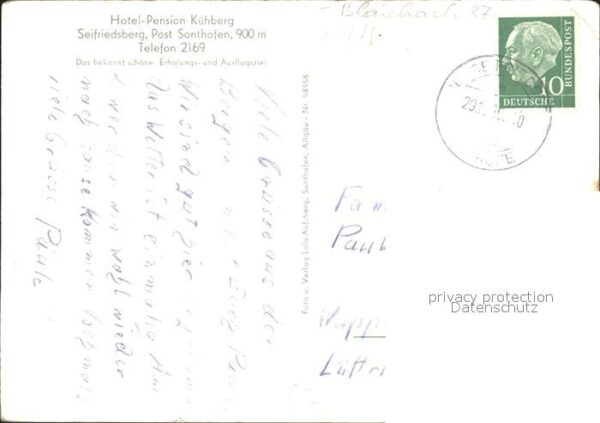 Hotel-Pension Kühberg
Seifriedsberg, Post Sonthofen, 900 m
Telefon 2169
Das bekannt schöne Erholungs- und Ausflugsziel
Blaichach 27
10
DEUTSCHE
BUNDESPOST
Viele Grüsse aus den
Bergen
Wir sind gut hier
das Wetter ist einmalig Am
werden wir wohl wieder
nach Hause kommen Nochmals
viele Grüsse Paula
Foto u. Verlag Lala Aufsberg, Sonthofen, Allgäu - Nr. 58368
Fam
Paul
Wupp
Lüttr
privacy protection
Datenschutz